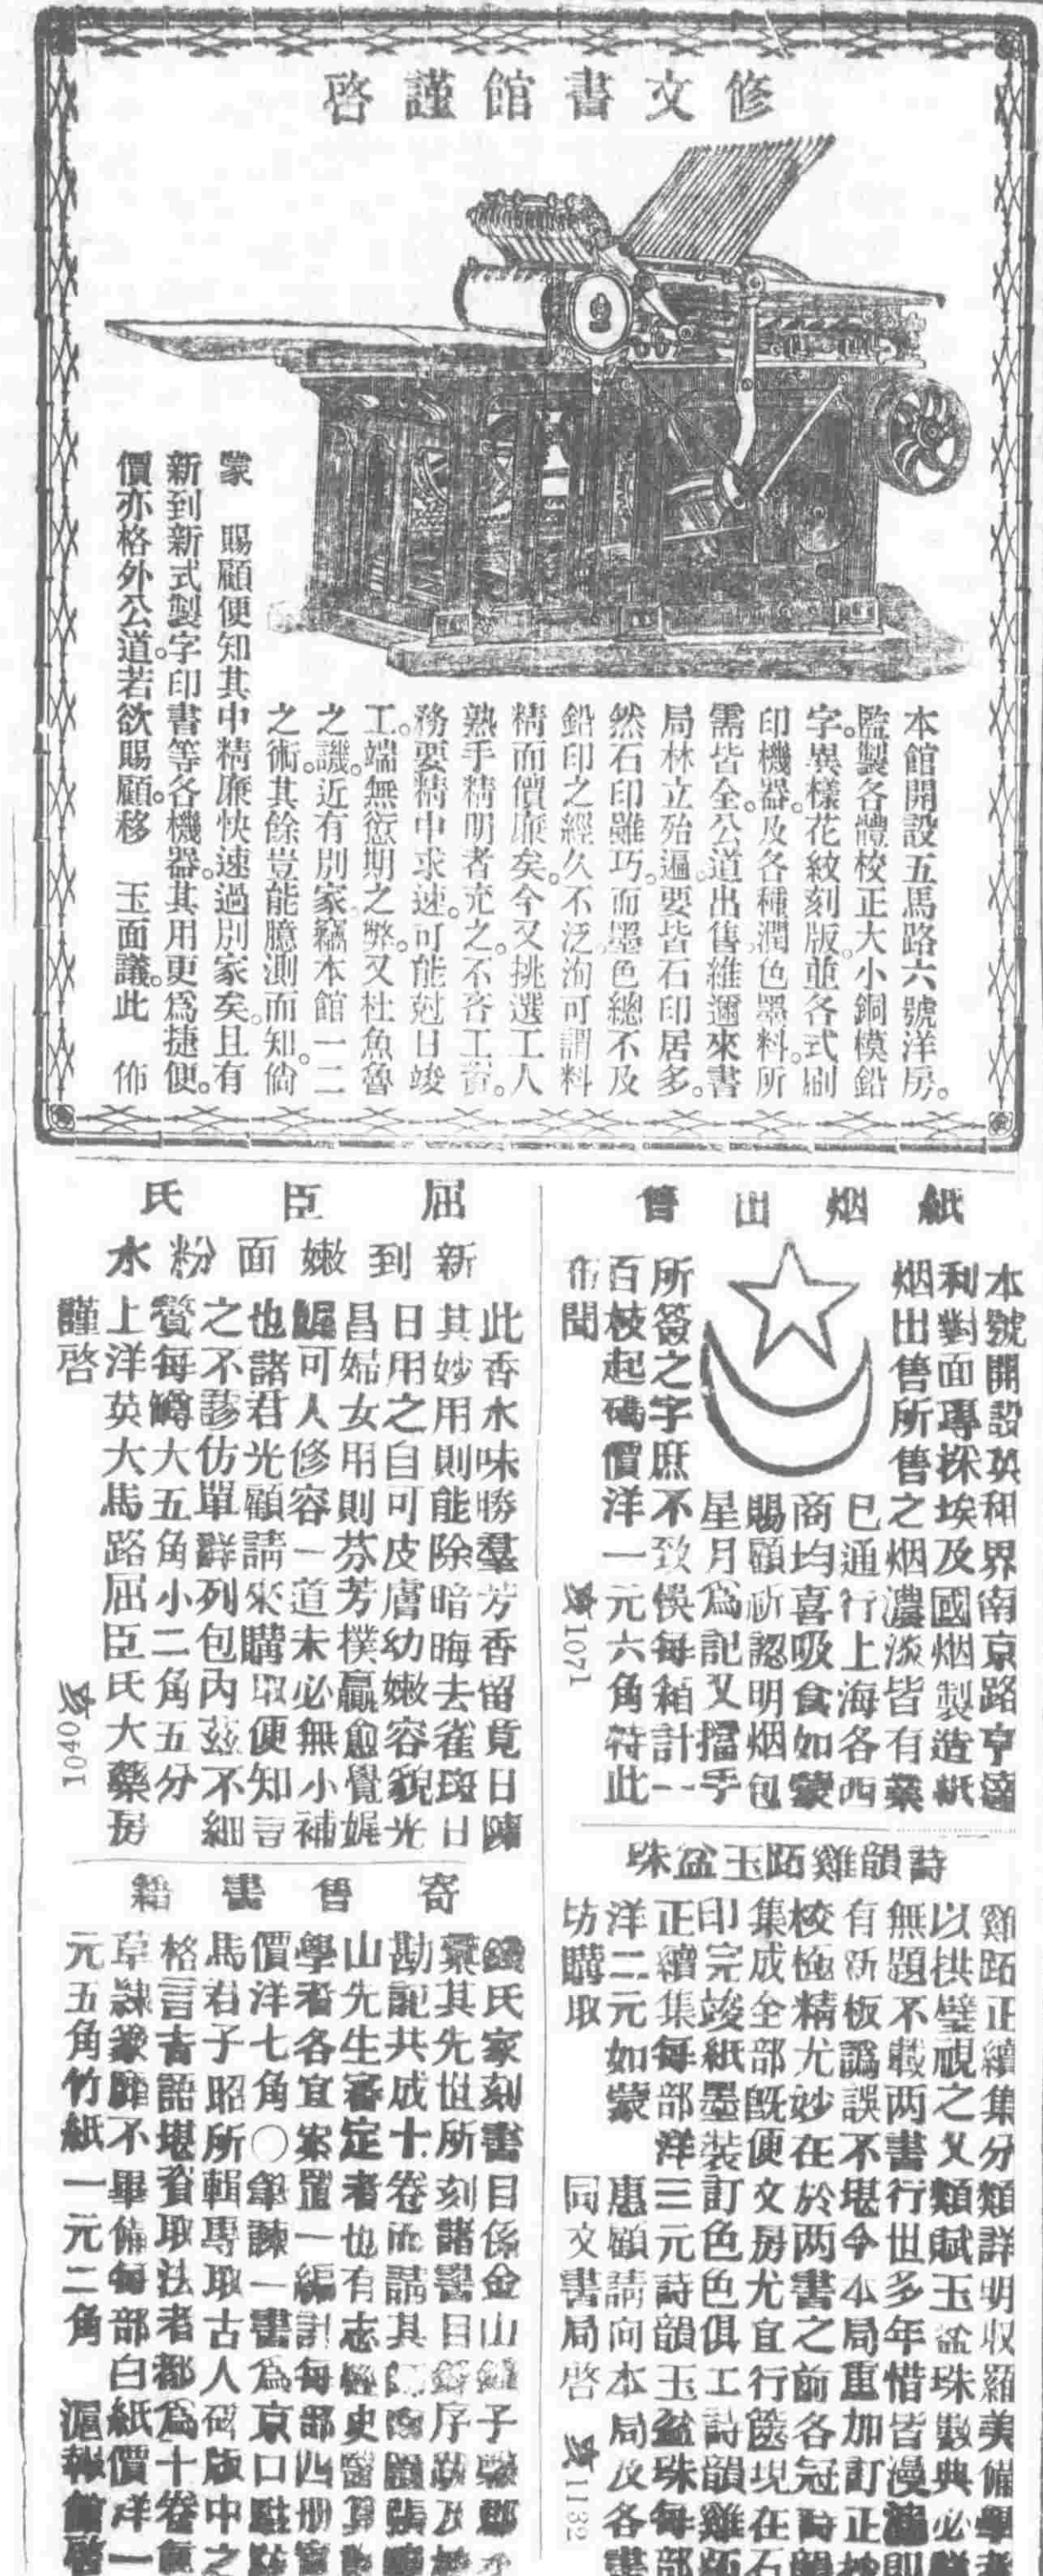 修文書館謹啓
本館開設五馬路六號洋房。
監製各體校正大小銅模鉛
字。異樣花紋刻版。並各式刷
印機器。及各種潤色墨料。所
需皆全。公道出售。維邇來書
局林立殆遍。要皆石印居多。
然石印雖巧。而墨色總不及
鉛印之經久不泛。洵可謂料
精而價廉矣。今又挑選工人
熟手精明者充之。不吝工資。
務要精中求速。可能尅日竣
工。端無愆期之弊。又杜魚魯
之譏。近有別家竊本館一二
之術。其餘豈能臆測而知。倘
蒙 賜顧便知其中精廉快速過別家矣。且有
新到新式製字印書等各機器。其用更爲捷便。
價亦格外公道。若欲賜顧。移 玉面議。此 佈
紙烟出售
本號開設英和界南京路亨達
利對面專採埃及國烟製造紙
烟出售所售之烟濃淡皆有業
已通行上海各西
商均喜吸食如蒙
賜顧祈認明烟包
星月爲記又擋手
所簽之字庶不致悞每箱計一
百枝起碼價洋一元六角特此
佈聞
1071
屈臣氏
新到嫩面粉水
此香水味勝羣芳香留竟日陳
其妙用則能除暗晦去雀斑日
日用之自可皮膚幼嫩容貌光
昌婦女用則芬芳撲贏愈覺娓
娓可人修容一道未必無小補
也諸君光顧請來購取便知言
之不謬仿單詳列包內茲不細
贅每罇大五角小二角五分
上洋英大馬路屈臣氏大藥房
謹啓
1040
詩韻雞跖玉盆珠
雞跖正續集分類詳明收羅美備學者
以拱璧視之又類賦玉盆珠數典必
無題不載两書行世多年惜皆漫 即
有新板譌誤不堪今本局重加訂正
校極精尤妙在於两書之前各冠詩韻
集成全部旣便文房尤宜行篋現在石
印完竣紙墨裝訂色色俱工詩韻雞跖
正續集每部洋三元詩韻玉盆珠每部
洋二元如蒙 惠顧請向本局及各書
坊購取 同文書局啓
1132
寄售書籍
氏家刻書目係金山 子
其先世所刻諸書目 序跋及
勘記共成十卷而請其 張
山先生審定者也有志經史醫算
學者各宜案置一編計每部四册實
價洋七角〇 諫一書爲京口駐
馬君子昭所輯專取古人碑版中之
格言吉語堪資取法者都爲十卷
草隸篆 不畢備每部白紙價洋一
元五角竹紙一元二角 滬報館啓